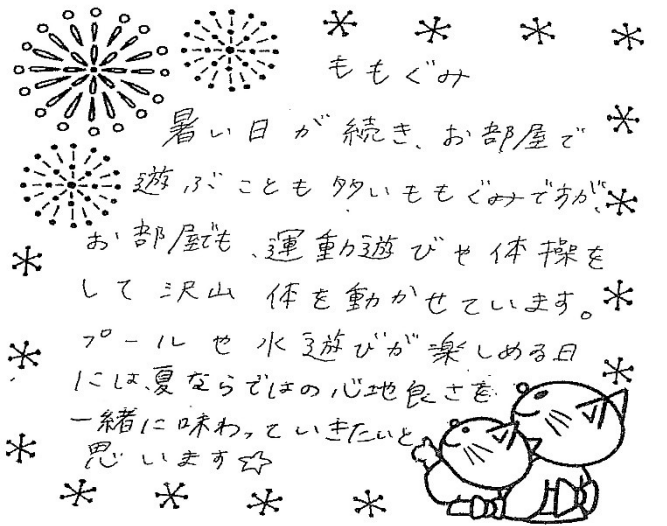 ももぐみ
暑い日が続き、お部屋で
遊ぶことも多いももぐみですが、
お部屋でも、運動遊びや体操を
して沢山 体を動かせています。
プールや水遊びが楽しめる日
には、夏ならではの心地良さを
一緒に味わっていきたいと
思います☆